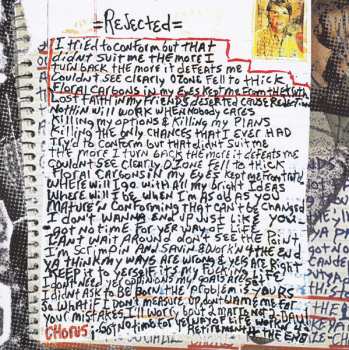 =Rejected=
I tried to conform but that
didnt suit me the more I
turn back the more it defeats me
Couldnt see clearly Ozone fell to thick
Floral carbons in my eyes kept me from the truth
Lost faith in my friends deserted cause
Nothin will work when nobody cares
Killing my options & killing my plans
Killing the only chances that I ever had
Try'd to conform but that didnt suit me
the more I turn back the more it defeats me
Couldnt see clearly Ozone fell to thick
Floral carbons in my eyes kept me from truth
Where will I go with all my bright ideas
Where will I be when Im as old as you
Mature & conforming that cant be changed
I don't wanna end up just like you
got no time for yer way of life
I cant wait around dont see the point
Im scrimpin and savin & workin 4 the end
Yo think my ways are wrong & yers are right
Keep it to yerself its my fucking life
I dont need yer opinions my goals are set
I didnt ask to be born the problem is yours
So what if I dont measure up, dont blame me for
your mistakes I'll worry bout
CHORUS: got no time for yer way of life workin 4
retirement 4 the end